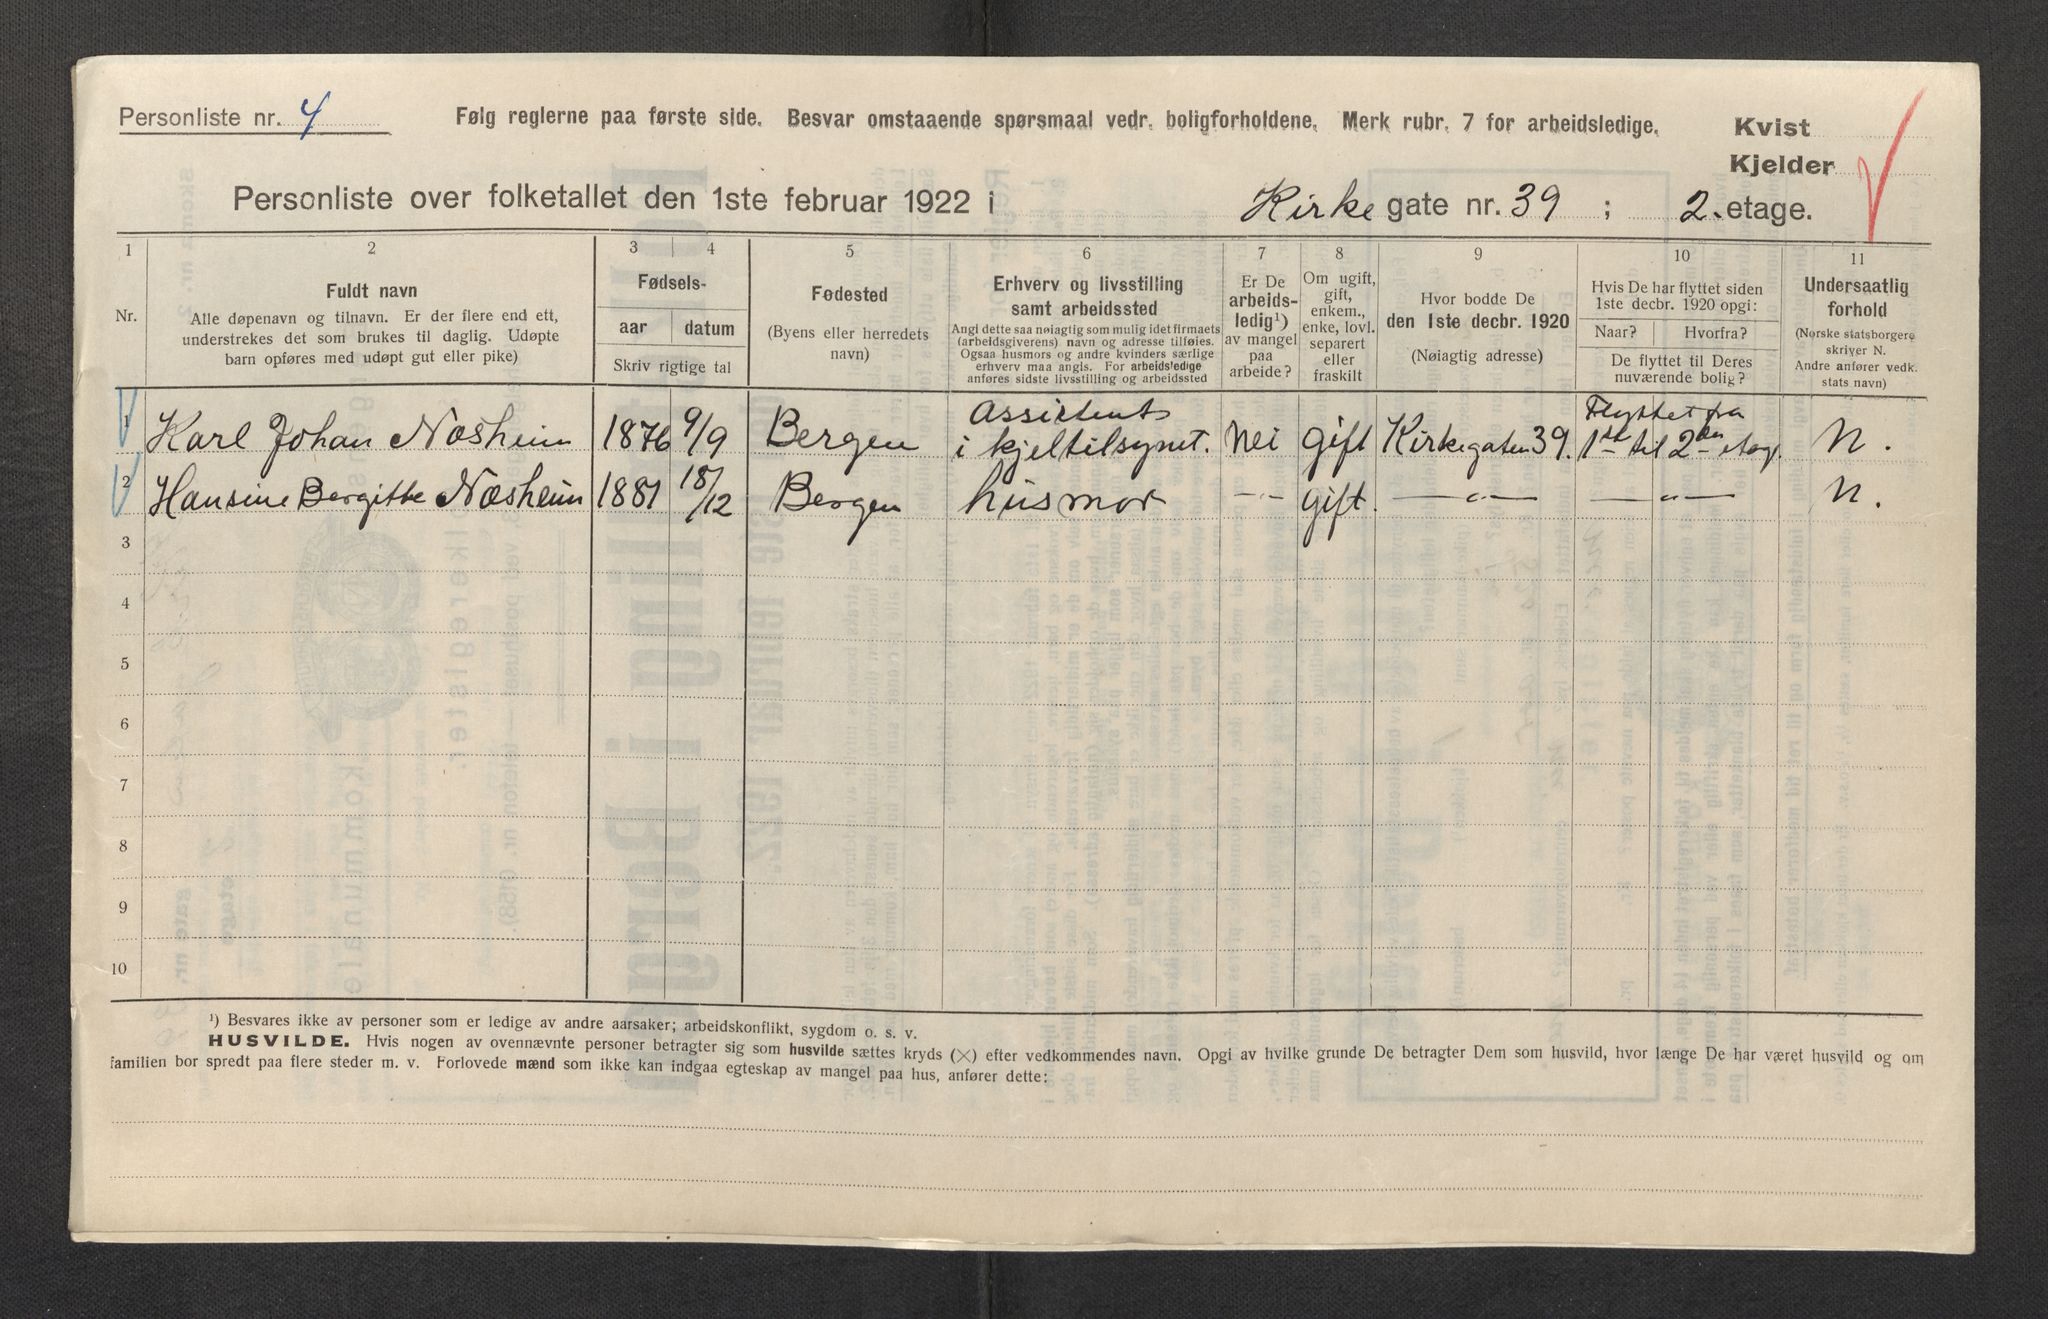 Personliste nr. 4
Følg reglerne paa første side. Besvar omstaaende spørsmaal vedr. boligforholdene. Merk rubr. 7 for arbeidsledige.
Kvist
Kjelder
Personliste over folketallet den 1ste februar 1922 i Kirke gate nr. 39 ; 2. etage.
1 2 3 4 5 6 7 8 9 10 11
Nr.
Fuldt navn
Alle døpenavn og tilnavn. Er der flere end ett,
understrekes det som brukes til daglig. Udøpte
barn opføres med udøpt gut eller pike)
Fødsels-
aar datum
Skriv rigtige tal
Fødested
(Byens eller herredets
navn)
Erhverv og livsstilling
samt arbeidssted
Angi dette saa nøiagtig som mulig idet firmaets
(arbeidsgiverens) navn og adresse tilføies.
Ogsaa husmors og andre kvinders særlige
erhverv maa angis. For arbeidsledige
anføres sidste livsstilling og arbeidssted
Er De
arbeids-
ledig¹)
av mangel
paa
arbeide?
Om ugift,
gift,
enkem.,
enke, lovl.
separert
eller
fraskilt
Hvor bodde De
den 1ste decbr. 1920
(Nøiagtig adresse)
Hvis De har flyttet siden
1ste decbr. 1920 opgi:
Naar? Hvorfra?
De flyttet til Deres
nuværende bolig?
Undersaatlig
forhold
(Norske statsborgere
skriver N.
Andre anfører vedk.
stats navn)
1 Karl Johan Næsheim 1876 9/9 Bergen Assistent i kjeltilsynet. Nei gift Kirkegaten 39. Flyttet fra 1ste til 2den etag. N.
2 Hansine Bergitte Næsheim 1881 18/12 Bergen husmor -"- gift. -"- -"- N.
3
4
5
6
7
8
9
10
¹) Besvares ikke av personer som er ledige av andre aarsaker; arbeidskonflikt, sygdom o. s. v.
HUSVILDE. Hvis nogen av ovennævnte personer betragter sig som husvilde sættes kryds (×) efter vedkommendes navn. Opgi av hvilke grunde De betragter Dem som husvild, hvor længe De har været husvild og om
familien bor spredt paa flere steder m. v. Forlovede mænd som ikke kan indgaa egteskap av mangel paa hus, anfører dette: